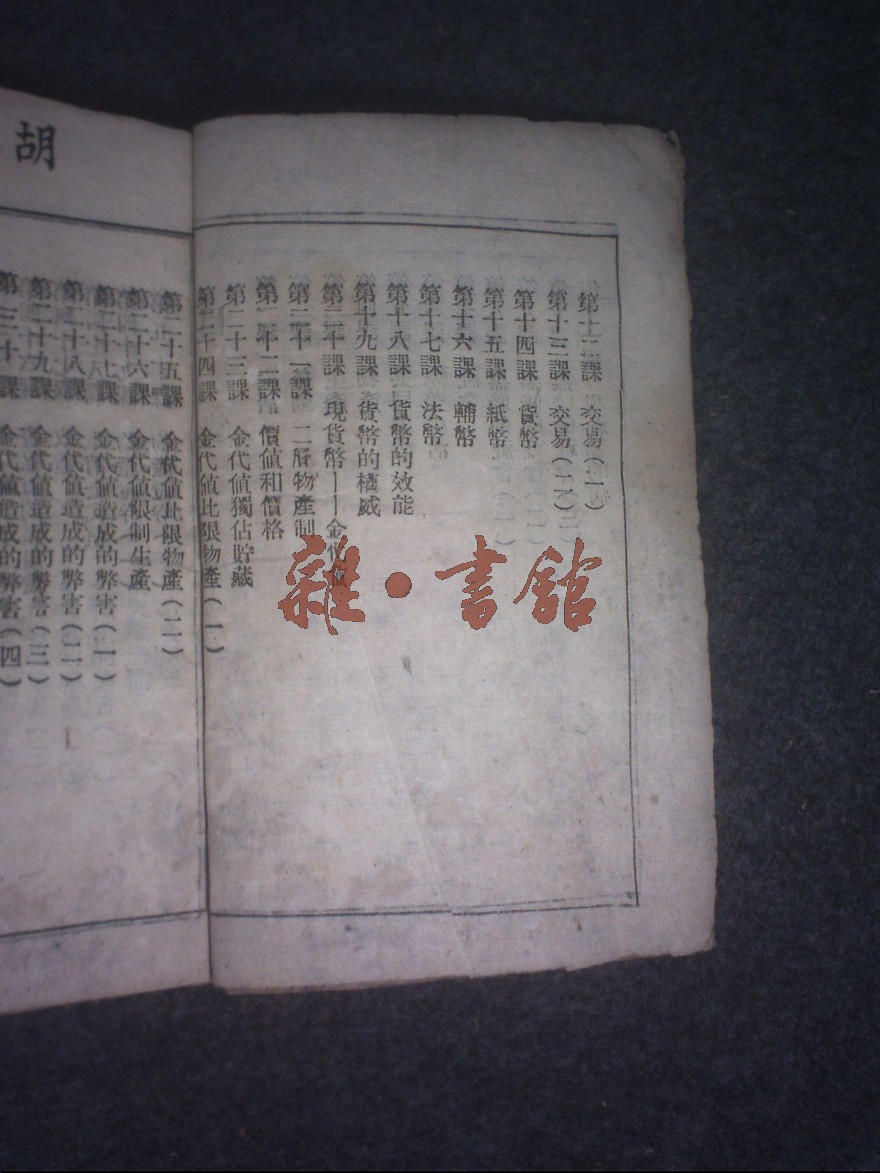 第十二課 交易(一)
第十三課 交易(二)
第十四課 貨幣
第十五課 紙幣
第十六課 輔幣
第十七課 法幣
第十八課 貨幣的效能
第十九課 貨幣的權威
第二十課 現貨幣——金代值
第二十一課 二層物產制
第二十二課 價值和價格
第二十三課 金代值獨佔貯藏
第二十四課 金代值比限物產(一)
第二十五課 金代值比限物產(二)
第二十六課 金代值限制生產
第二十七課 金代值造成的弊害(一)
第二十八課 金代值造成的弊害(二)
第二十九課 金代值造成的弊害(三)
第三十課 金代值造成的弊害(四)
胡
雜·書館